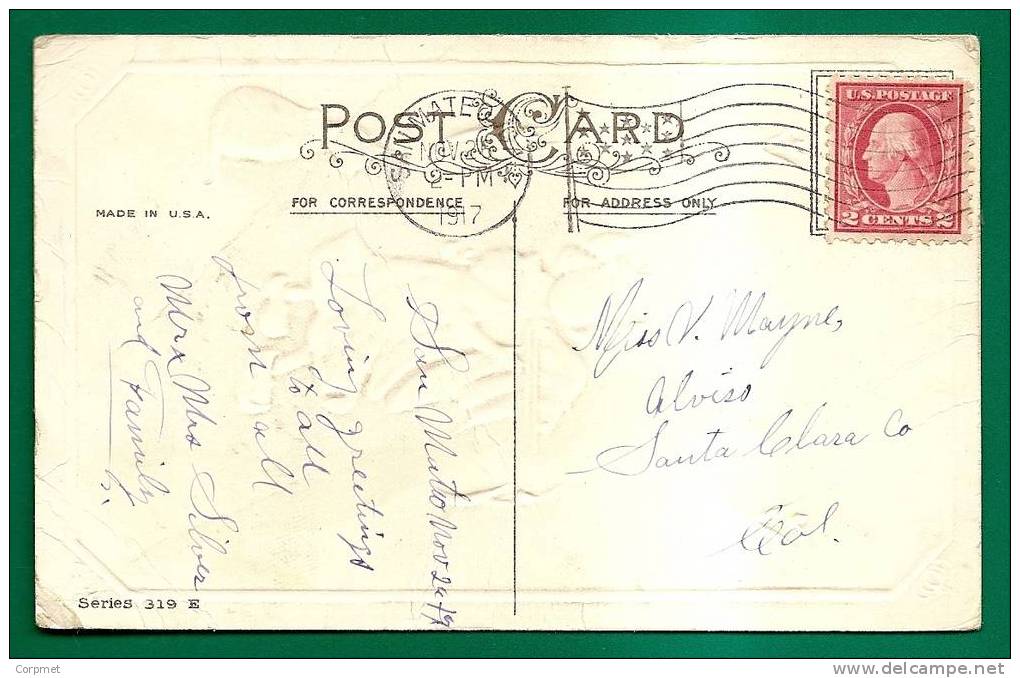 POST CARD.
SAN MATEO
NOV 2
2-PM
1917
U.S. POSTAGE
2 CENTS 2
MADE IN U.S.A.
FOR CORRESPONDENCE
FOR ADDRESS ONLY
San Mateo Nov 24 17
Loving greetings
to all
from all
Mr & Mrs Silver
and Family
Miss V. Mayne,
Alviso
Santa Clara Co
Cal.
Series 319 E
Corpmet
www.delcampe.net